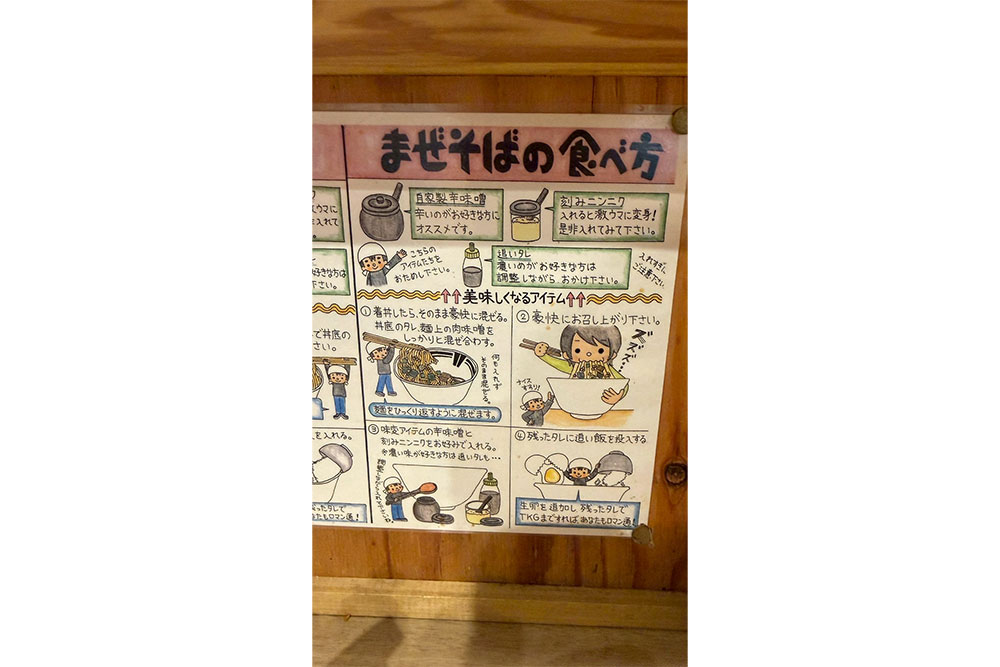 まぜそばの食べ方
自家製辛味噌
辛いのがお好きな方に
オススメです。
刻みニンニク
入れると激ウマに変身!
是非入れてみて下さい。
こちらの
アイテムたちを
おためし下さい。
追いタレ
濃いめがお好きな方は
調整しながらおかけ下さい。
入れすぎに
ご注意下さい
↑↑美味しくなるアイテム↑↑
① 着丼したら、そのまま豪快に混ぜる。
丼底のタレ、麺上の肉味噌を
しっかりと混ぜ合わす。
何も入れず
そのまま混ぜる。
麺をひっくり返すように混ぜます。
② 豪快にお召し上がり下さい。
ズズズ…
ナイス
すすり!
③ 味変アイテムの辛味噌と
刻みニンニクをお好みで入れる。
※濃い味が好きな方は追いタレも…
④ 残ったタレに追い飯を投入する
生卵を追加し、残ったタレで
TKGまですれば、あなたもロマン通!
ウマに
入れて
お好きな方は
下さい。
で丼底の
さい。
を入れる。
ったタレで
なたもロマン通!